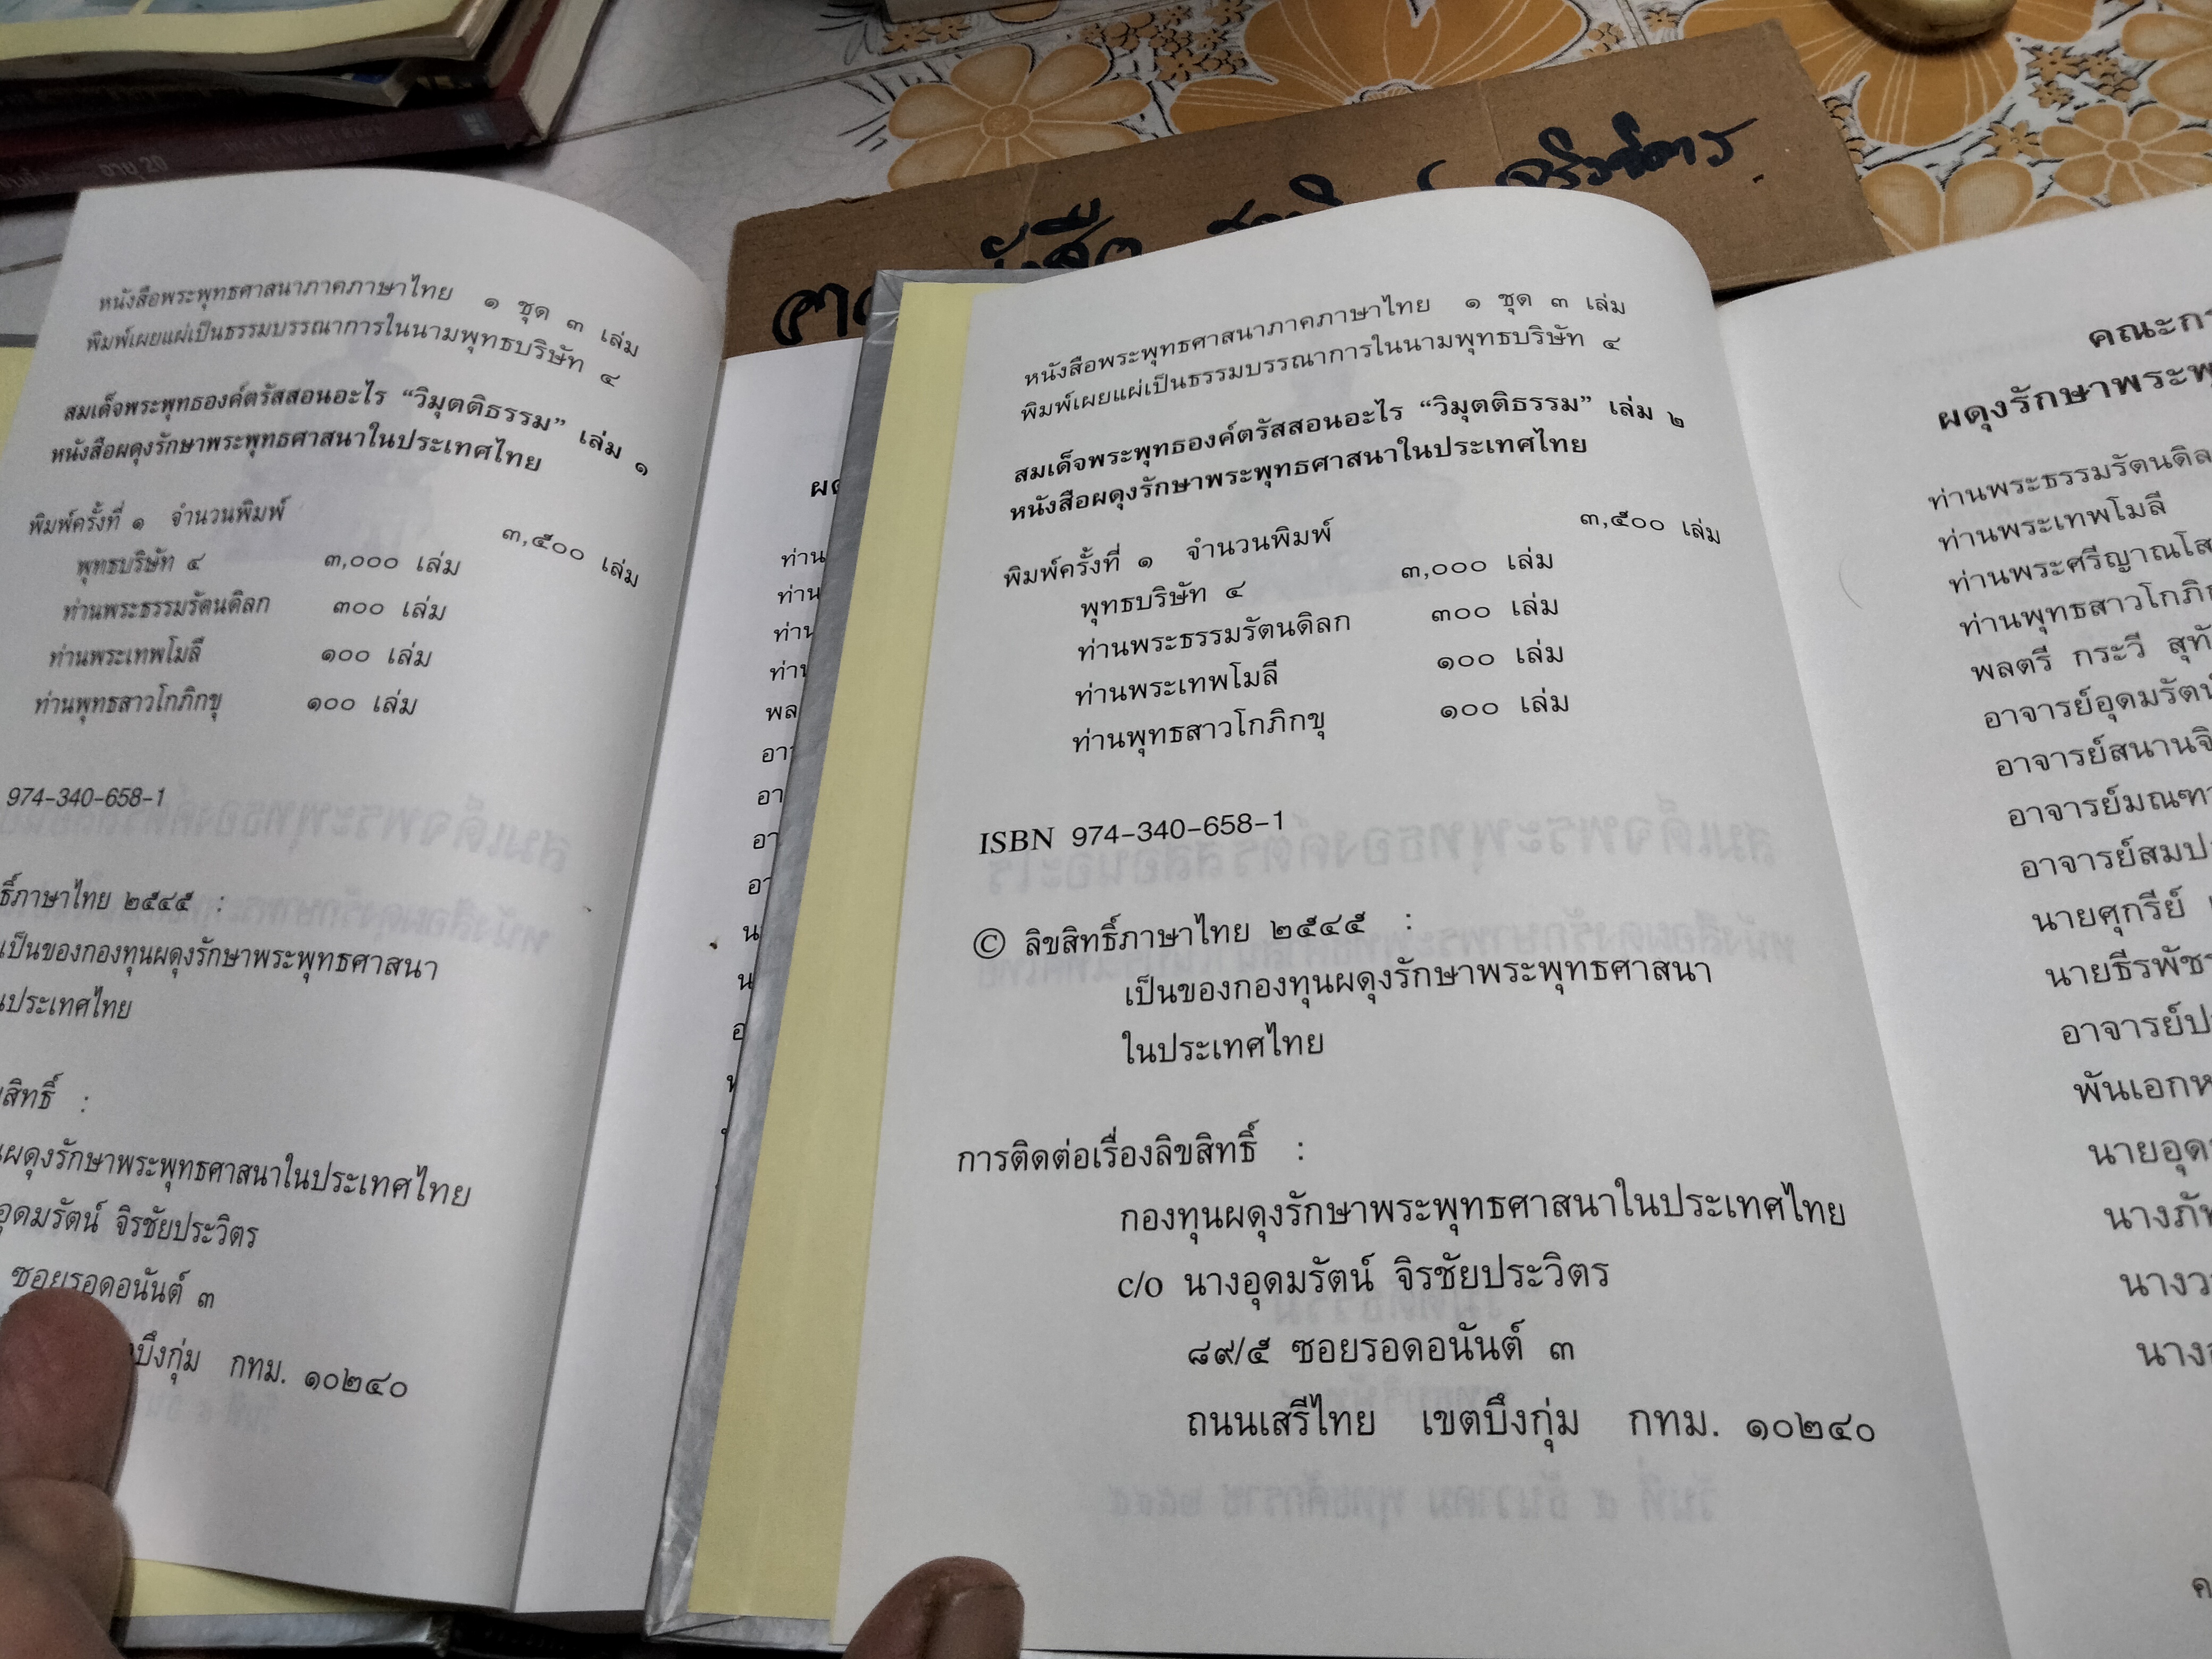 อายุ 20
หนังสือพระพุทธศาสนาภาคภาษาไทย ๑ ชุด ๓ เล่ม
พิมพ์เผยแผ่เป็นธรรมบรรณาการในนามพุทธบริษัท ๔
สมเด็จพระพุทธองค์ตรัสสอนอะไร “วิมุตติธรรม” เล่ม ๑
หนังสือผดุงรักษาพระพุทธศาสนาในประเทศไทย
พิมพ์ครั้งที่ ๑ จำนวนพิมพ์ ๓,๕๐๐ เล่ม
พุทธบริษัท ๔ ๓,๐๐๐ เล่ม
ท่านพระธรรมรัตนดิลก ๓๐๐ เล่ม
ท่านพระเทพโมลี ๑๐๐ เล่ม
ท่านพุทธสาวโกภิกขุ ๑๐๐ เล่ม
974-340-658-1
ธิ์ภาษาไทย ๒๕๔๕ :
เป็นของกองทุนผดุงรักษาพระพุทธศาสนา
นประเทศไทย
สิทธิ์ :
ผดุงรักษาพระพุทธศาสนาในประเทศไทย
อุดมรัตน์ จิรชัยประวิตร
ซอยรอดอนันต์ ๓
บึงกุ่ม กทม. ๑๐๒๔๐
ท่าน
ท่าน
ท่าน
ท่าน
พล
อา
อา
อา
หนังสือพระพุทธศาสนาภาคภาษาไทย ๑ ชุด ๓ เล่ม
พิมพ์เผยแผ่เป็นธรรมบรรณาการในนามพุทธบริษัท ๔
สมเด็จพระพุทธองค์ตรัสสอนอะไร “วิมุตติธรรม” เล่ม ๒
หนังสือผดุงรักษาพระพุทธศาสนาในประเทศไทย
พิมพ์ครั้งที่ ๑ จำนวนพิมพ์ ๓,๕๐๐ เล่ม
พุทธบริษัท ๔ ๓,๐๐๐ เล่ม
ท่านพระธรรมรัตนดิลก ๓๐๐ เล่ม
ท่านพระเทพโมลี ๑๐๐ เล่ม
ท่านพุทธสาวโกภิกขุ ๑๐๐ เล่ม
ISBN 974-340-658-1
© ลิขสิทธิ์ภาษาไทย ๒๕๔๕ :
เป็นของกองทุนผดุงรักษาพระพุทธศาสนา
ในประเทศไทย
การติดต่อเรื่องลิขสิทธิ์ :
กองทุนผดุงรักษาพระพุทธศาสนาในประเทศไทย
c/o นางอุดมรัตน์ จิรชัยประวิตร
๘๙/๕ ซอยรอดอนันต์ ๓
ถนนเสรีไทย เขตบึงกุ่ม กทม. ๑๐๒๔๐
คณะก
ผดุงรักษาพระพ
ท่านพระธรรมรัตนดิล
ท่านพระเทพโมลี
ท่านพระศรีญาณโส
ท่านพุทธสาวโกภิก
พลตรี กระวี สุทั
อาจารย์อุดมรัตน์
อาจารย์สนานจิ
อาจารย์มณฑา
อาจารย์สมป
นายศุกรีย์
นายธีรพัชร
อาจารย์ป
พันเอกห
นายอุด
นางภั
นางว
นาง